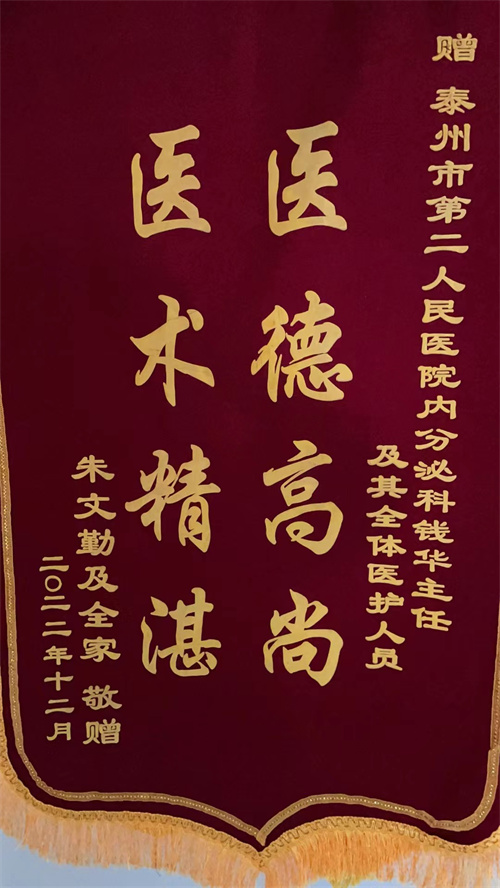 赠 泰州市第二人民医院内分泌科钱华主任
及其全体医护人员
医德高尚
医术精湛
朱文勤及全家 敬赠
二〇二二年十二月